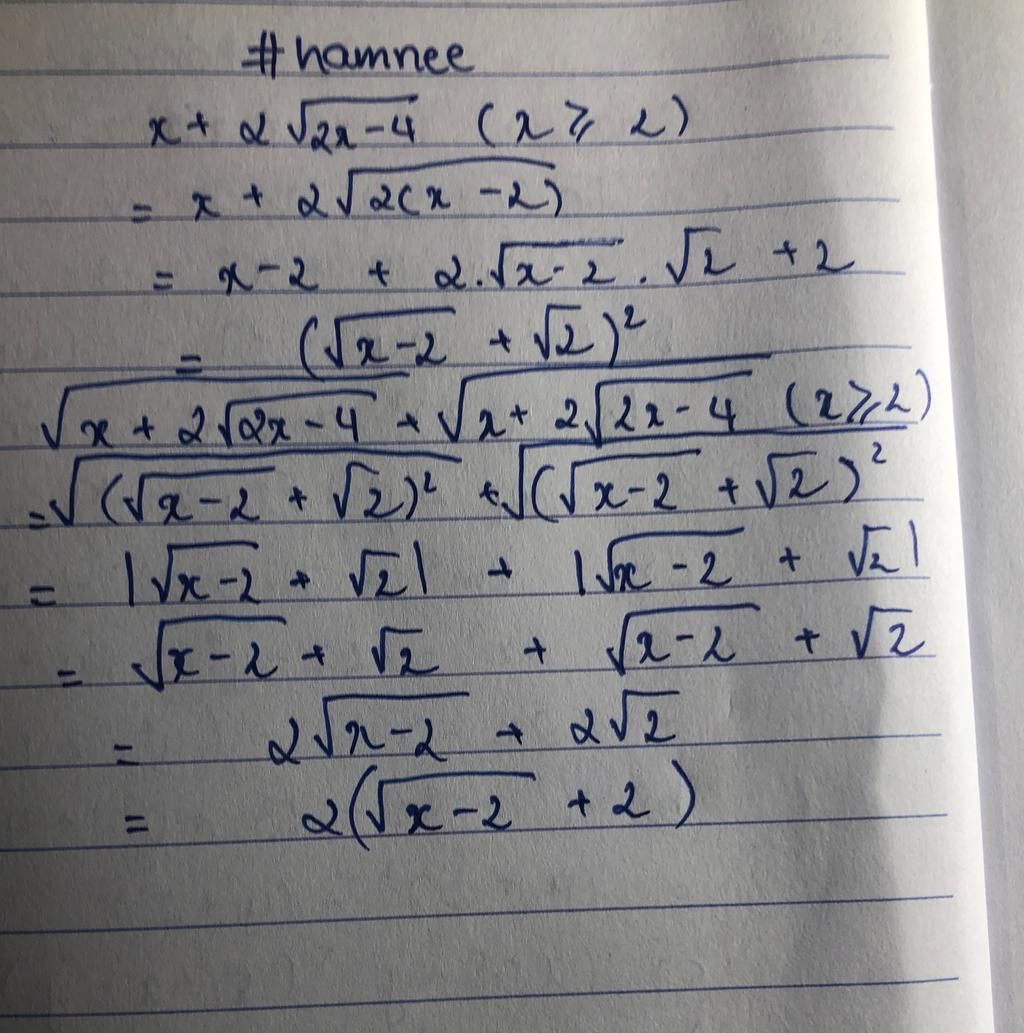 #hamnee
x + 2√(2x-4) (x ≥ 2)
= x + 2√(2(x-2))
= x-2 + 2.√(x-2) . √2 + 2
= (√(x-2) + √2)²
√(x + 2√(2x-4)) + √(x + 2√(2x-4)) (x ≥ 2)
= √((√(x-2) + √2)²) + √((√(x-2) + √2)²)
= |√(x-2) + √2| + |√(x-2) + √2|
= √(x-2) + √2 + √(x-2) + √2
= 2√(x-2) + 2√2
= 2(√(x-2) + 2)